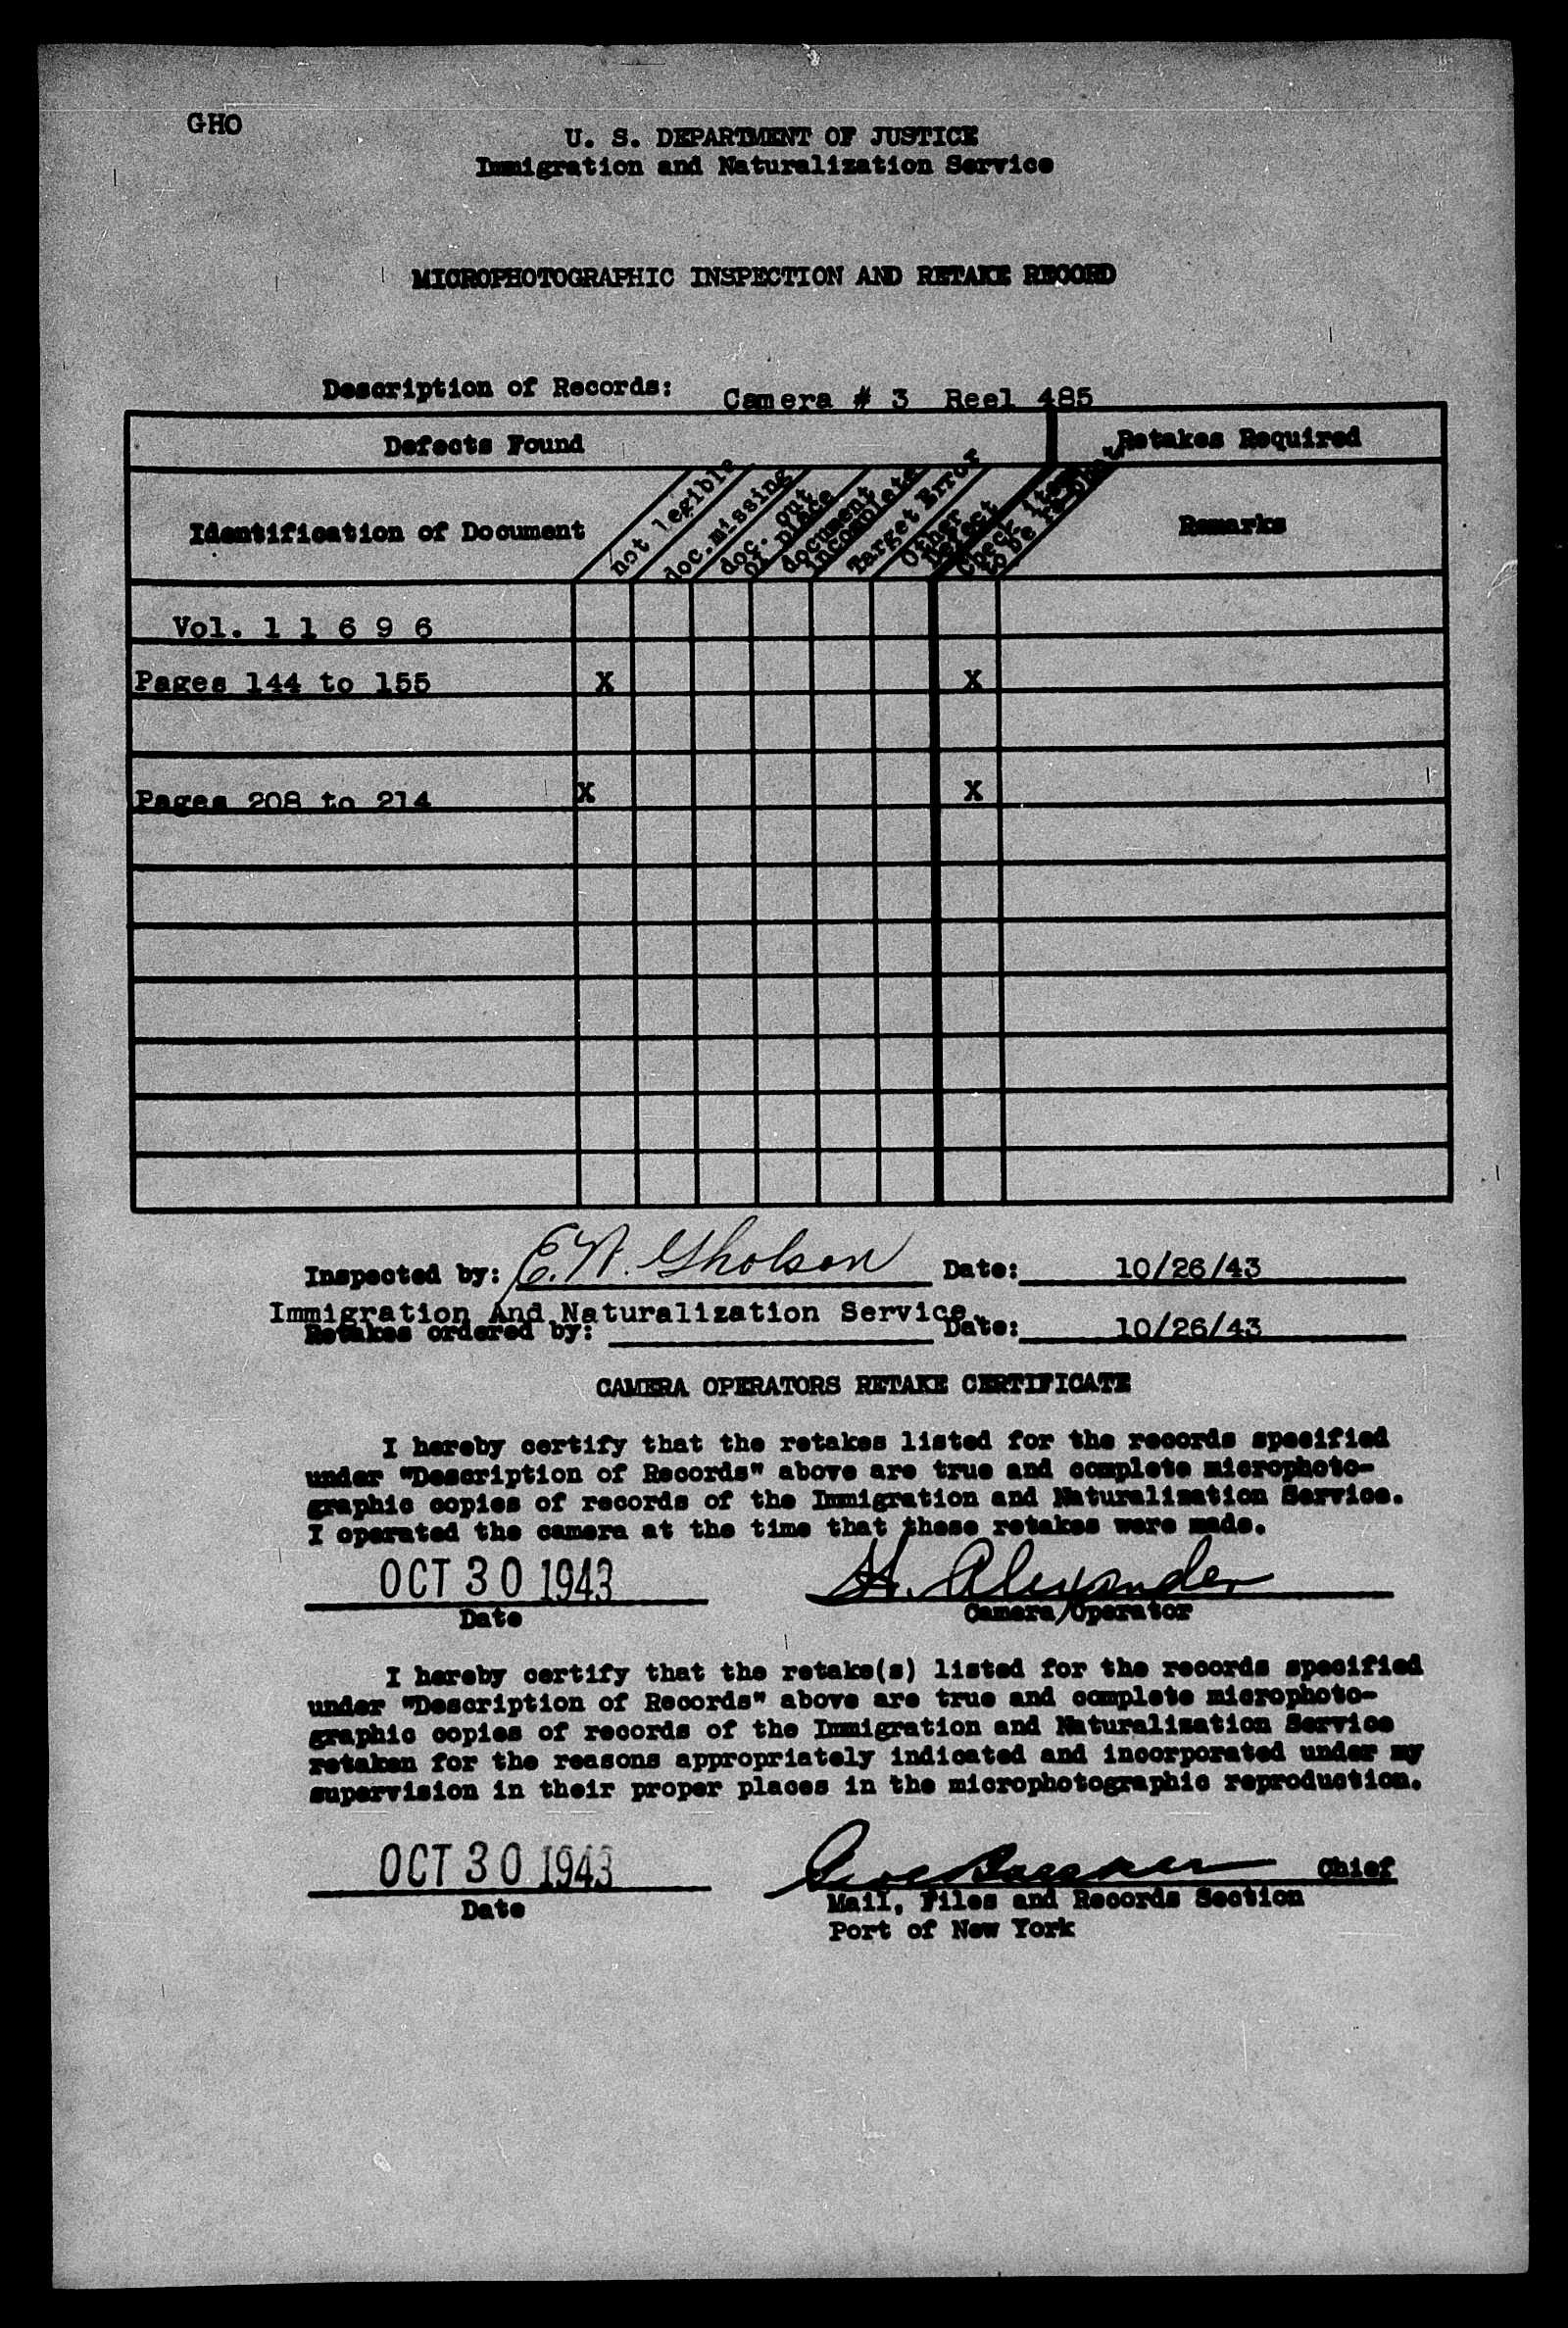 GHO
U. S. DEPARTMENT OF JUSTICE
Immigration and Naturalization Service
MICROPHOTOGRAPHIC INSPECTION AND RETAKE RECORD
Description of Records: Camera # 3 Reel 485
Defects Found Retakes Required
Identification of Document
not legible
doc. missing
doc. out
of place
document
incomplete
Target Error
Other
Defect
Check item
to be
Remarks
Vol. 1 1 6 9 6
Pages 144 to 155 X X
Pages 208 to 214 X X
Inspected by: E. N. Gholson Date: 10/26/43
Immigration And Naturalization Service.
Retakes ordered by: Date: 10/26/43
CAMERA OPERATORS RETAKE CERTIFICATE
I hereby certify that the retakes listed for the records specified
under "Description of Records" above are true and complete microphoto-
graphic copies of records of the Immigration and Naturalization Service.
I operated the camera at the time that these retakes were made.
OCT 30 1943 H. Alexander
Date Camera Operator
I hereby certify that the retake(s) listed for the records specified
under "Description of Records" above are true and complete microphoto-
graphic copies of records of the Immigration and Naturalization Service
retaken for the reasons appropriately indicated and incorporated under my
supervision in their proper places in the microphotographic reproduction.
OCT 30 1943 Chief
Date Mail, Files and Records Section
Port of New York